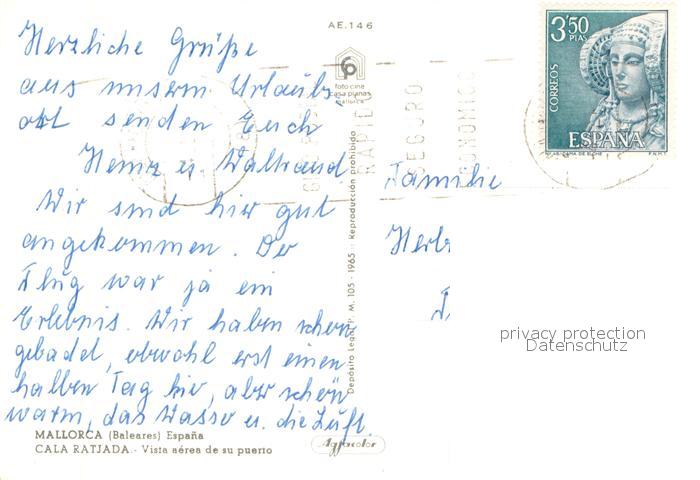 AE.146
Herzliche Grüße
aus unserm Urlaubs
ort senden Euch
Heinz u. Waltraud
Wir sind hier gut
angekommen. Der
Flug war ja ein
Erlebnis. Wir haben schon
gebadet, obwohl erst einen
halben Tag hier, aber schön
warm, das Wasser u. die Luft.
MALLORCA (Baleares) España
CALA RATJADA.- Vista aérea de su puerto
foto cine
casa planas
mallorca
Depósito Legal P. M. 105 - 1965 - Reproducción prohibida
Agfacolor
RAPIDO
SEGURO
ECONOMICO
3'50
PTAS
CORREOS
ESPAÑA
DAMA DE ELCHE
F.N.M.T.
Familie
Herb
privacy protection
Datenschutz